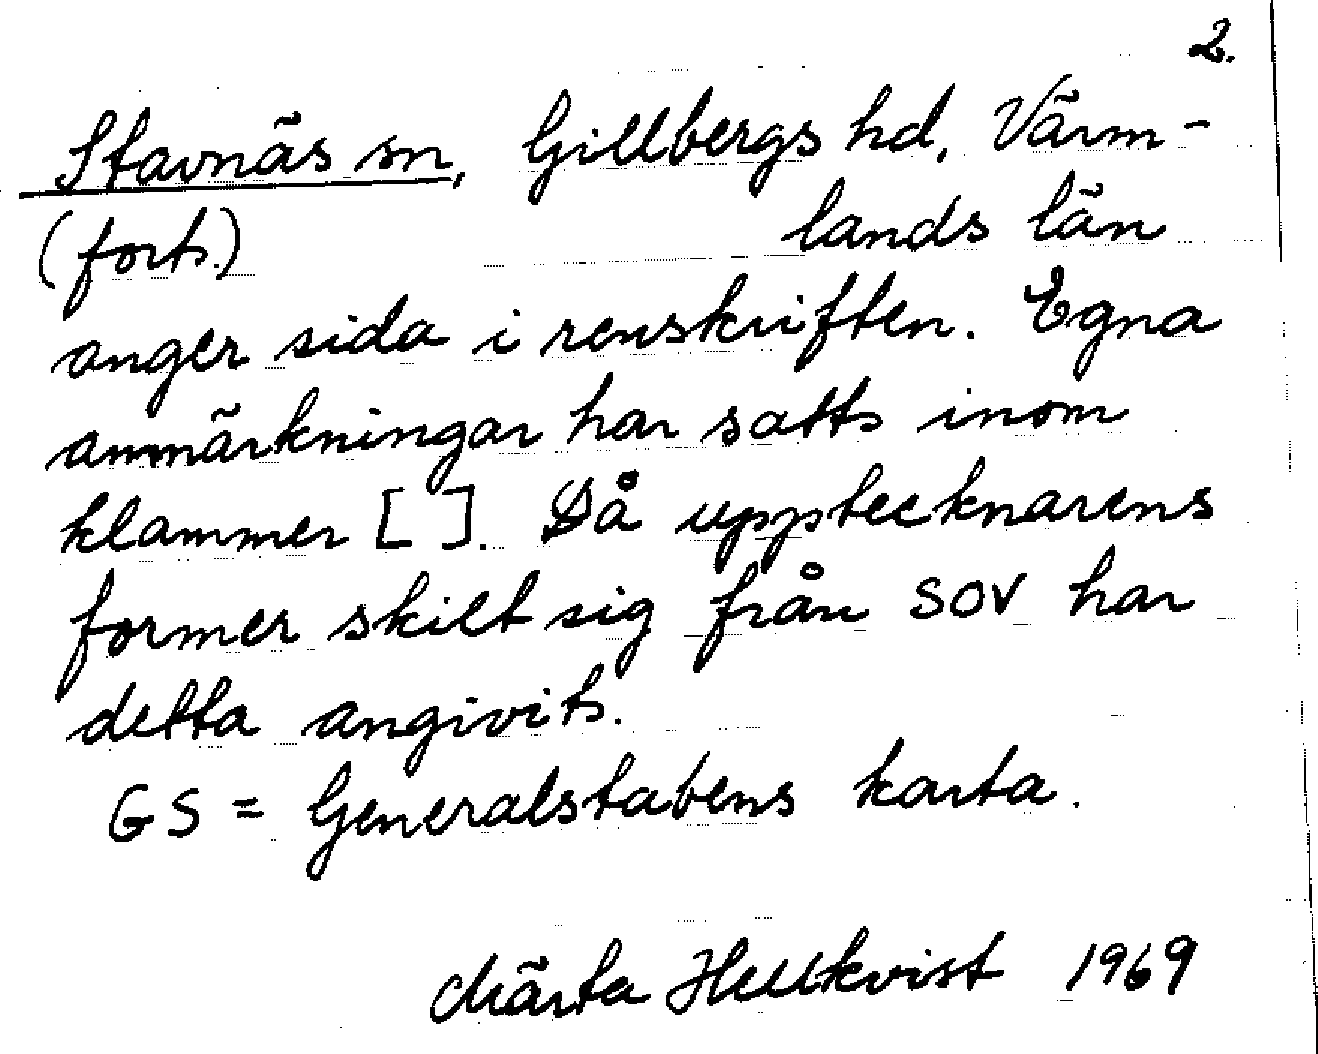 2.
Stavnäs sn, Gillbergs hd, Värm-
(forts.) lands län
anger sida i renskriften. Egna
anmärkningar har satts inom
klammer [ ]. Då upptecknarens
former skilt sig från SOV har
detta angivits.
GS = Generalstabens karta.
Märta Hellkvist 1969